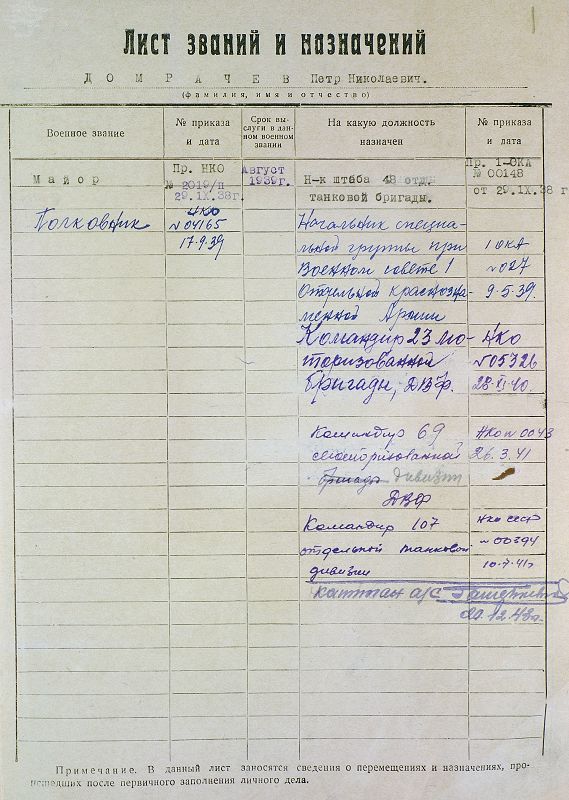 Лист званий и назначений
ДОМРАЧЕВ Петр Николаевич.
(фамилия, имя и отчество)
Военное звание
№ приказа
и дата
Срок вы-
слуги в дан-
ном военном
звании
На какую должность
назначен
№ приказа
и дата
Майор
Пр. НКО
№ 2019/п
29.IX.38г.
Август
1939г.
Н-к штаба 48 отд.
танковой бригады.
Пр. 1-ОКА
№ 00148
от 29.IX.38 г
Полковник
НКО
№ 04165
17.9.39
Начальник специа-
льной группы при
Военном совете 1
Отдельной краснозна-
менной Армии
1 ОКА
№ 027
9.5.39.
Командир 23 мо-
торизованной
бригады, ДВФ.
НКО
№ 05326
28.XI.40.
Командир 69
моторизованной
бригады дивизии
ДВФ
НКО № 0043
26.3.41
Командир 107
отдельной танковой
дивизии
НКО СССР
№ 00394
10.7.41г
капитан а/с
20.12.43г.
Примечание. В данный лист заносятся сведения о перемещениях и назначениях, про-
исшедших после первичного заполнения личного дела.